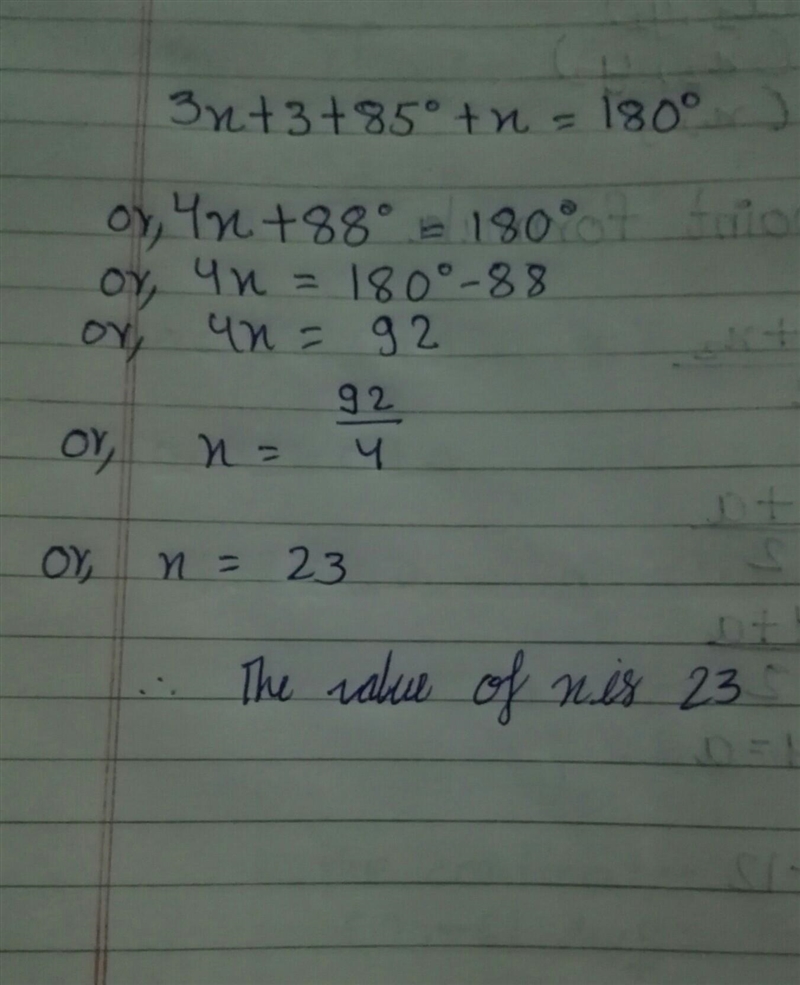 3x+3+85°+x = 180°
or, 4x+88° = 180°
or, 4x = 180°-88
or, 4x = 92
or, x = 92/4
or, x = 23
∴ The value of x is 23